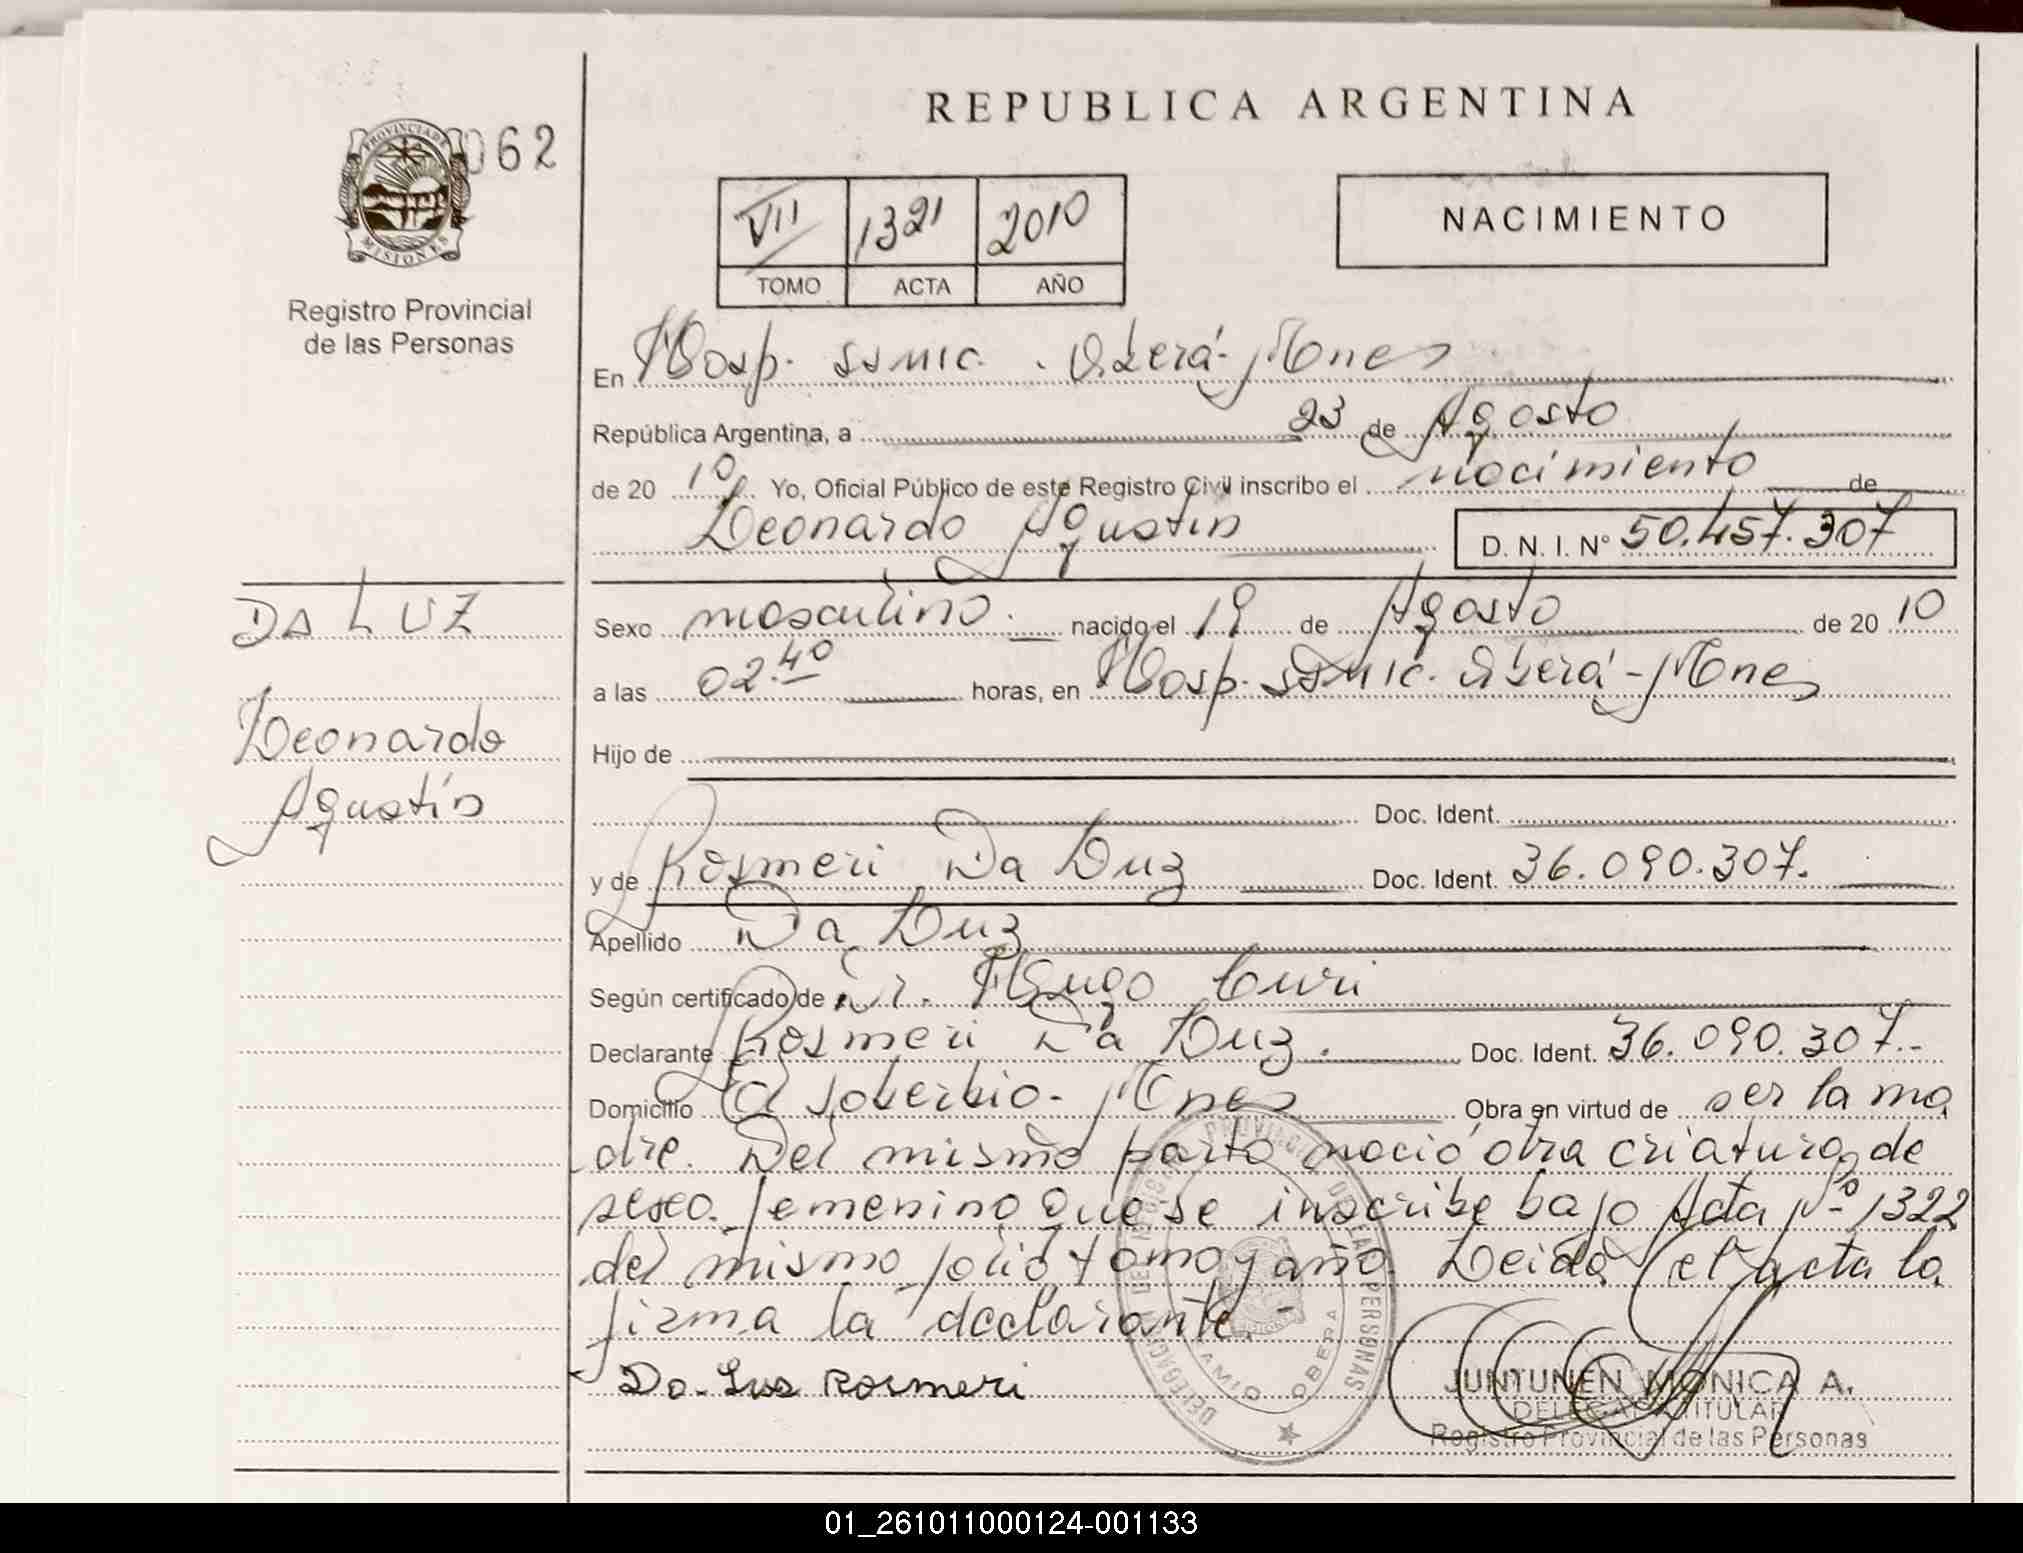 REPUBLICA ARGENTINA
062
PROVINCIA DE
MISIONES
Registro Provincial
de las Personas
VII 1321 2010
TOMO ACTA AÑO
NACIMIENTO
En Hosp. SSMIC. Oberá-Mnes
República Argentina, a 23 de Agosto
de 20 10 Yo, Oficial Público de este Registro Civil inscribo el nacimiento de
Leonardo Agustín D. N. I. Nº 50.457.307
DA LUZ
Leonardo
Agustín
Sexo masculino. nacido el 19 de Agosto de 20 10
a las 02.40 horas, en Hosp. SSMIC. Oberá-Mnes
Hijo de
Doc. Ident.
y de Rosmeri Da Luz Doc. Ident. 36.090.307.
Apellido Da Luz
Según certificado de Dr. Hugo Curi
Declarante Rosmeri Da Luz. Doc. Ident. 36.090.307.-
Domicilio El Soberbio-Mnes Obra en virtud de ser la ma
dre. Del mismo parto nació otra criatura de
sexo femenino que se inscribe bajo Acta Nº 1322
del mismo folio tomo y año. Leida el acta la
firma la declarante.-
Da Luz Rosmeri
DELEGACION PROVINCIAL DE LAS PERSONAS
OBERA
JUNTUNEN MONICA A.
DELEGADA TITULAR
Registro Provincial de las Personas
01_261011000124-001133